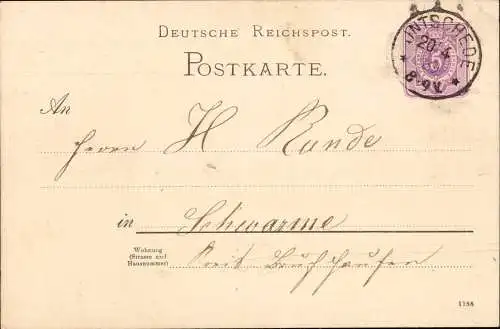 DEUTSCHE REICHSPOST.
POSTKARTE.
JNTSCHEDE
20 4
8-9 V.
5
An
Herrn H Rande
in Schwarme
Wohnung
(Strasse und
Hausnummer)
Kreis Bruchhausen
1188